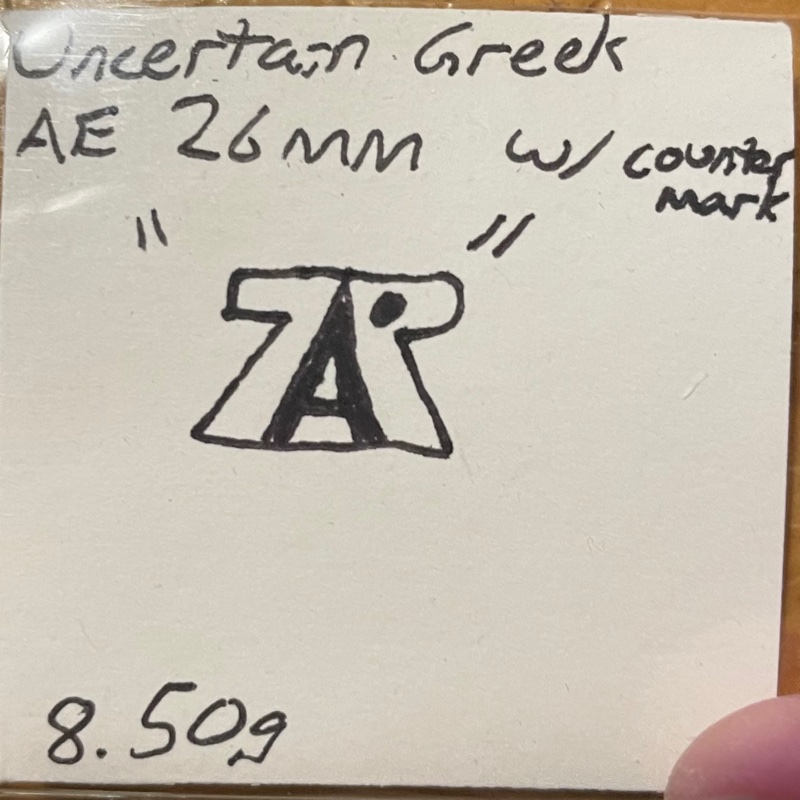 Uncertain Greek
AE 26MM w/ counter
mark
" ZAP "
8.50g